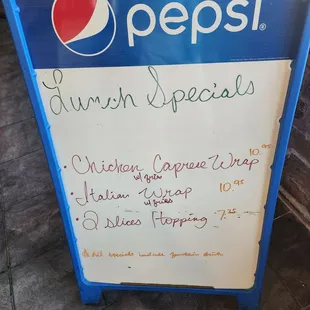 pepsi
Lunch Specials
• Chicken Caprese Wrap 10.95
w/ fries
• Italian Wrap 10.95
w/ fries
• 2 slices 1 topping 7.25
All specials include fountain drink